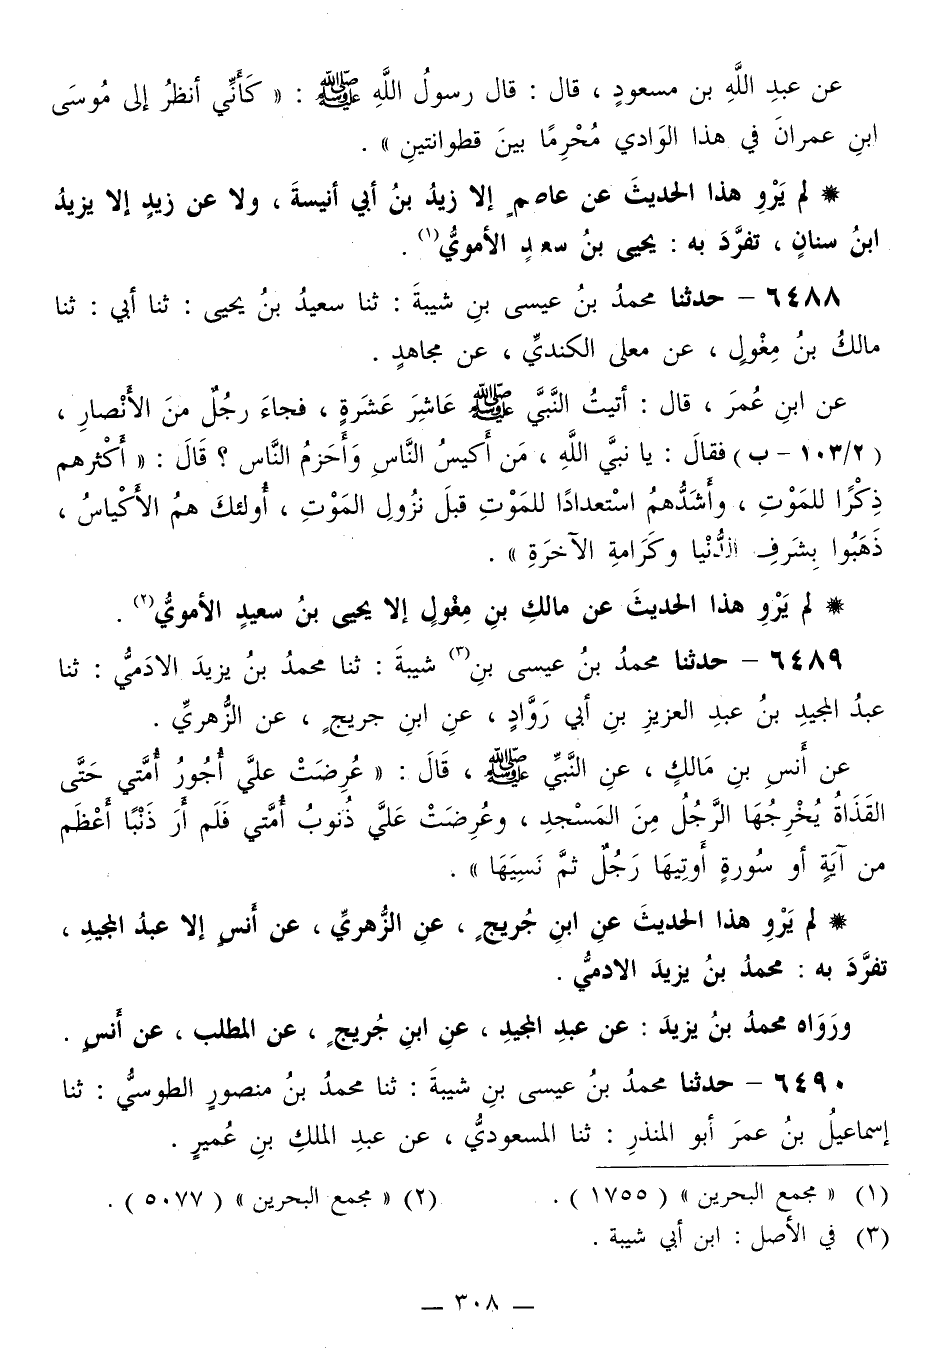 عن عبدِ اللَّهِ بن مسعودٍ ، قال : قال رسولُ اللَّهِ ﷺ : « كَأَنِّي أنظرُ إلى مُوسَى
ابنِ عمرانَ في هذا الوَادي مُحْرِمًا بينَ قطوانتينِ » .
* لم يَرْوِ هذا الحديثَ عن عاصمٍ إلا زيدُ بنُ أبي أنيسةَ ، ولا عن زيدٍ إلا يزيدُ
ابنُ سنانٍ ، تفرَّدَ به : يحيى بنُ سعيدٍ الأمويُّ(١) .
٦٤٨٨ – حدثنا محمدُ بنُ عيسى بنِ شيبةَ : ثنا سعيدُ بنُ يحيى : ثنا أبي : ثنا
مالكُ بنُ مِغْولٍ ، عن معلى الكنديِّ ، عن مجاهدٍ .
عن ابنِ عُمرَ ، قال : أتيتُ النَّبيَّ ﷺ عَاشِرَ عَشَرَةٍ ، فجاءَ رجُلٌ منَ الأَنْصارِ ،
( ١٠٣/٢ – ب ) فقالَ : يا نبيَّ اللَّهِ ، مَن أَكيسُ النَّاسِ وَأَحَزمُ النَّاس ؟ قَالَ : « أَكْثرهم
ذِكْرًا للمَوْتِ ، وأَشدُّهمُ اسْتعدادًا للمَوْتِ قبلَ نزُولِ المَوْتِ ، أُولئكَ همُ الأَكْياسُ ،
ذَهَبُوا بِشَرفِ الدُّنْيا وكَرَامةِ الآخرَةِ » .
* لم يَرْوِ هذا الحديثَ عن مالكِ بنِ مِغْولٍ إلا يحيى بنُ سعيدٍ الأمويُّ(٢) .
٦٤٨٩ – حدثنا محمدُ بنُ عيسى بنِ(٣) شيبةَ : ثنا محمدُ بنُ يزيدَ الادَميُّ : ثنا
عبدُ المجيدِ بنُ عبدِ العزيزِ بنِ أبي رَوَّادٍ ، عنِ ابنِ جريجٍ ، عن الزُّهريِّ .
عن أَنسِ بنِ مَالكٍ ، عنِ النَّبيِّ ﷺ ، قَالَ : « عُرِضَتْ عليَّ أُجُورُ أُمَّتي حَتَّى
القَذَاةُ يُخْرِجُهَا الرَّجُلُ مِنَ المَسْجدِ ، وعُرِضَتْ عَلَيَّ ذُنوبُ أُمَّتي فَلَم أَرَ ذَنْبًا أَعْظَم
من آيَةٍ أو سُورةٍ أُوتِيهَا رَجُلٌ ثمَّ نَسِيَهَا » .
* لم يَرْوِ هذا الحديثَ عنِ ابنِ جُريجٍ ، عنِ الزُّهريِّ ، عن أَنسٍ إلا عبدُ المجيدِ ،
تفرَّدَ به : محمدُ بنُ يزيدَ الادميُّ .
ورَوَاه محمدُ بنُ يزيدَ : عن عبدِ المجيدِ ، عنِ ابنِ جُريجٍ ، عن المطلب ، عن أَنسٍ .
٦٤٩٠ – حدثنا محمدُ بنُ عيسى بنِ شيبةَ : ثنا محمدُ بنُ منصورٍ الطوسيُّ : ثنا
إسماعيلُ بنُ عمرَ أبو المنذرِ : ثنا المسعوديُّ ، عن عبدِ الملكِ بنِ عُميرٍ .
(١) « مجمع البحرين » ( ١٧٥٥ ) . (٢) « مجمع البحرين » ( ٥٠٧٧ ) .
(٣) في الأصل : ابن أبي شيبة .
— ٣٠٨ —